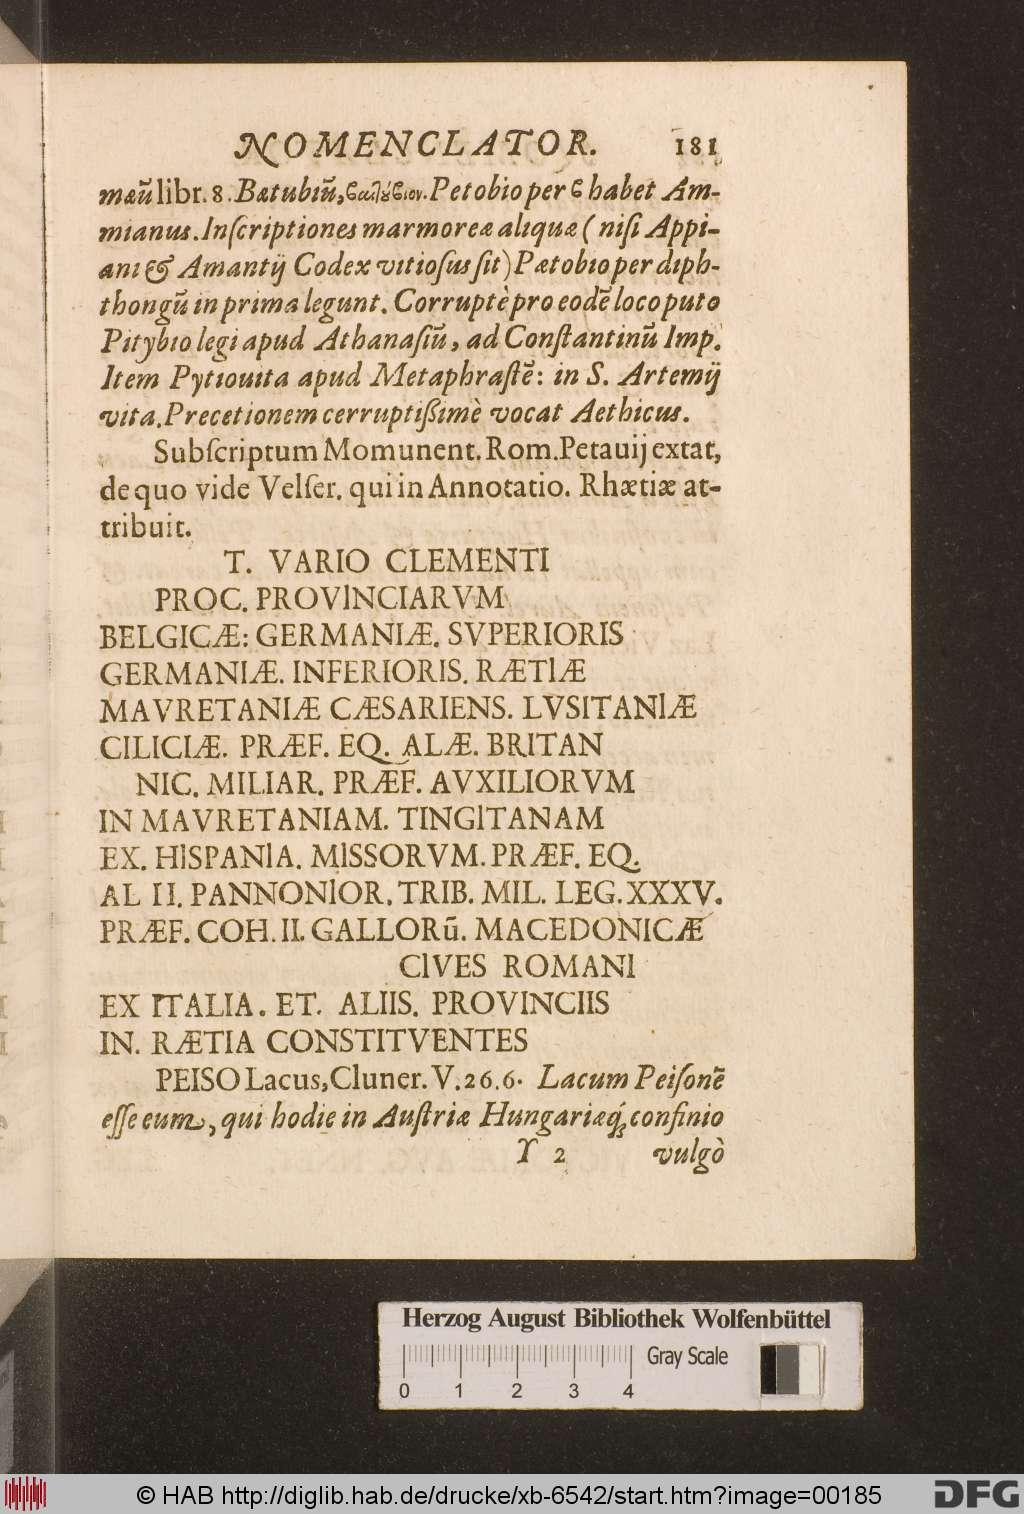 NOMENCLATOR. 181
mæū libr. 8. Bætubiū, βαιτύβιον. Petobio per ϐ habet Am-
mianus. Inſcriptiones marmoreæ aliquæ ( niſi Appi-
ani & Amantij Codex vitioſus ſit) Pætobio per diph-
thongū in prima legunt. Corruptè pro eodē loco puto
Pitybio legi apud Athanaſiū, ad Conſtantinū Imp.
Item Pytiouita apud Metaphraſtē: in S. Artemij
vita. Precetionem cerruptißimè vocat Aethicus.
Subſcriptum Momunent. Rom. Petauij extat,
de quo vide Velſer. qui in Annotatio. Rhætiæ at-
tribuit.
T. VARIO CLEMENTI
PROC. PROVINCIARVM
BELGICÆ: GERMANIÆ. SVPERIORIS
GERMANIÆ. INFERIORIS. RÆTIÆ
MAVRETANIÆ CÆSARIENS. LVSITANIÆ
CILICIÆ. PRÆF. EQ. ALÆ. BRITAN
NIC. MILIAR. PRÆF. AVXILIORVM
IN MAVRETANIAM. TINGITANAM
EX. HISPANIA. MISSORVM. PRÆF. EQ.
AL II. PANNONIOR. TRIB. MIL. LEG. XXXV.
PRÆF. COH. II. GALLORū. MACEDONICÆ
CIVES ROMANI
EX ITALIA. ET. ALIIS. PROVINCIIS
IN. RÆTIA CONSTITVENTES
PEISO Lacus, Cluner. V. 26. 6. Lacum Peiſonē
eſſe eum, qui hodie in Auſtriæ Hungariæq́; confinio
Y 2 vulgò
Herzog August Bibliothek Wolfenbüttel
Gray Scale
0 1 2 3 4
© HAB http://diglib.hab.de/drucke/xb-6542/start.htm?image=00185
DFG